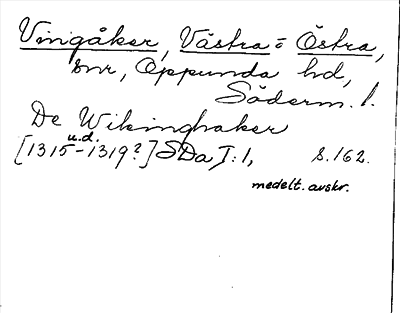 Vingåker, Västra = Östra,
snr, Oppunda hd,
Söderm. l.
De Wikinghaker
u.d.
[1315-1319?] SDa, I:1, S. 162.
medelt. avskr.